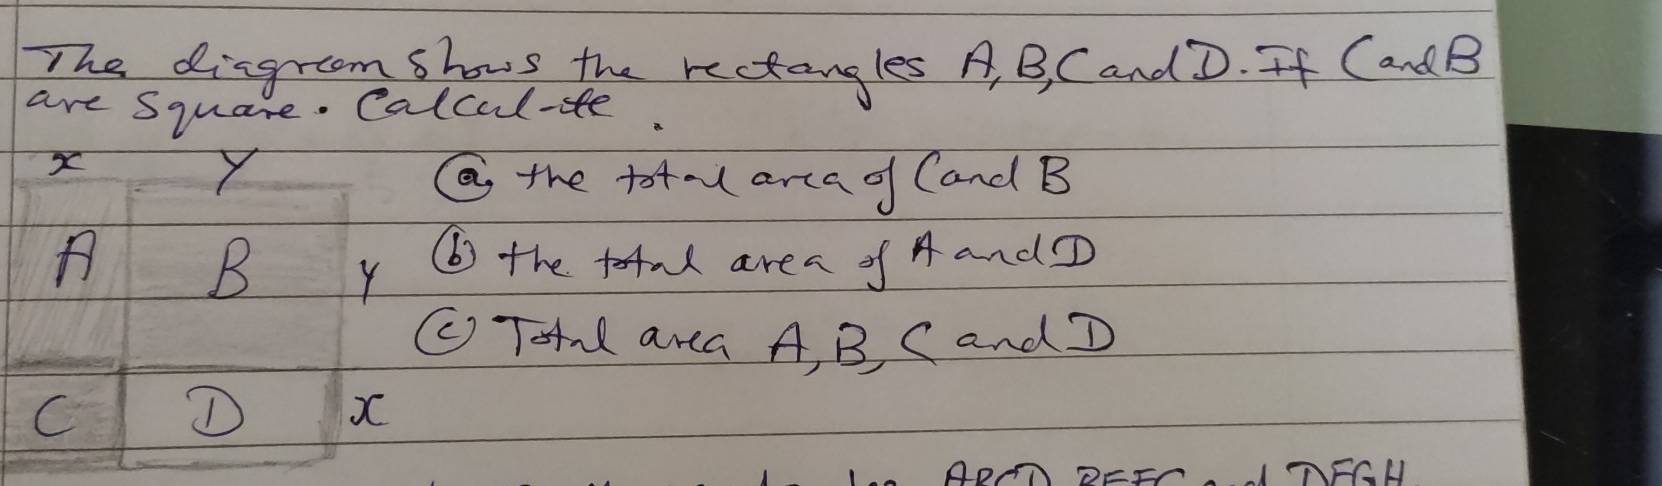 The diagram shows the rectangles A, B, C and D. If C and B
are square. Calculate.
x Y
(a) the total area of C and B
A B Y
(b) the total area of A and D
(c) Total area A, B, C and D
C D x
ABCD BEFC and DFGH